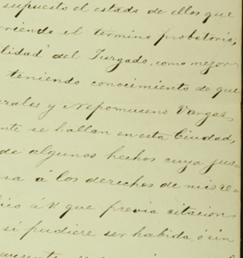 supuesto el estado de ellos que
corriendo el termino probatorio,
alidad del Juzgado, como mejor
teniendo conocimiento de que
rales y Nepomuceno Vargas,
nte se hallan en esta Ciudad,
de algunos hechos cuya jus
na á los derechos de mis re
ico á V que previa citacion
si pudiere ser habida ó sin